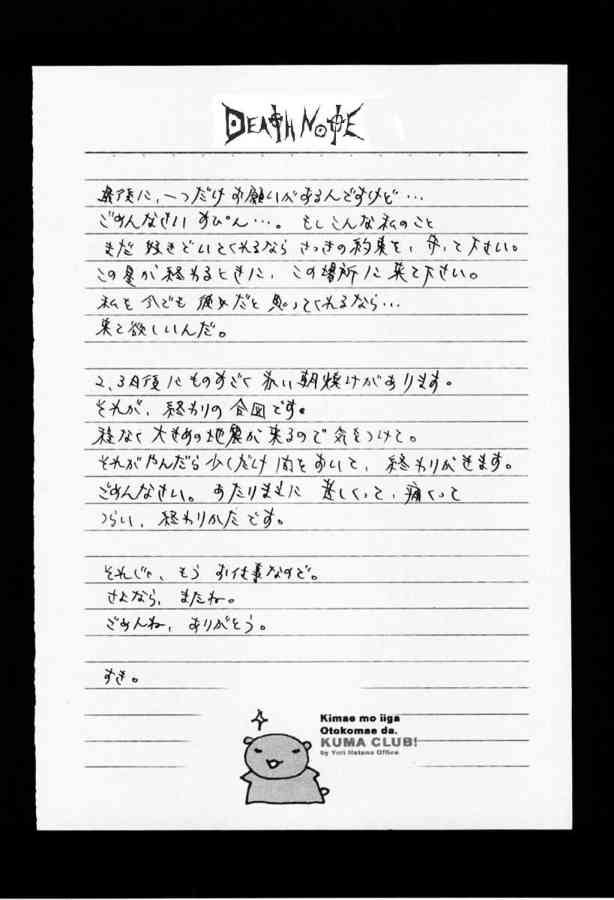 DEATH NOTE
最後に、一つだけお願いがあるんですけど…
ごめんなさい あぴん…。もしこんな私のこと
まだ 好きでいてくれるなら さっきの約束を、守って下さい。
この星が終わるときに、この場所に来て下さい。
私を 少しでも 彼女だと 思ってくれるなら…
来て欲しいんだ。
2、3ヵ月後にものすごく 赤い朝焼けがあります。
それが、終わりの合図です。
程なく 大きめの地震が来るので 気をつけて。
それがやんだら 少しだけ 間をおいて、終わりがきます。
ごめんなさい。あたりまえに 苦しくって、痛くって
つらい、終わりかたです。
それじゃ、もう お仕事なので。
さよなら、またね。
ごめんね、ありがとう。
すき。
Kimae mo iiga
Otokomae da.
KUMA CLUB!
by Yuri Hatano Office